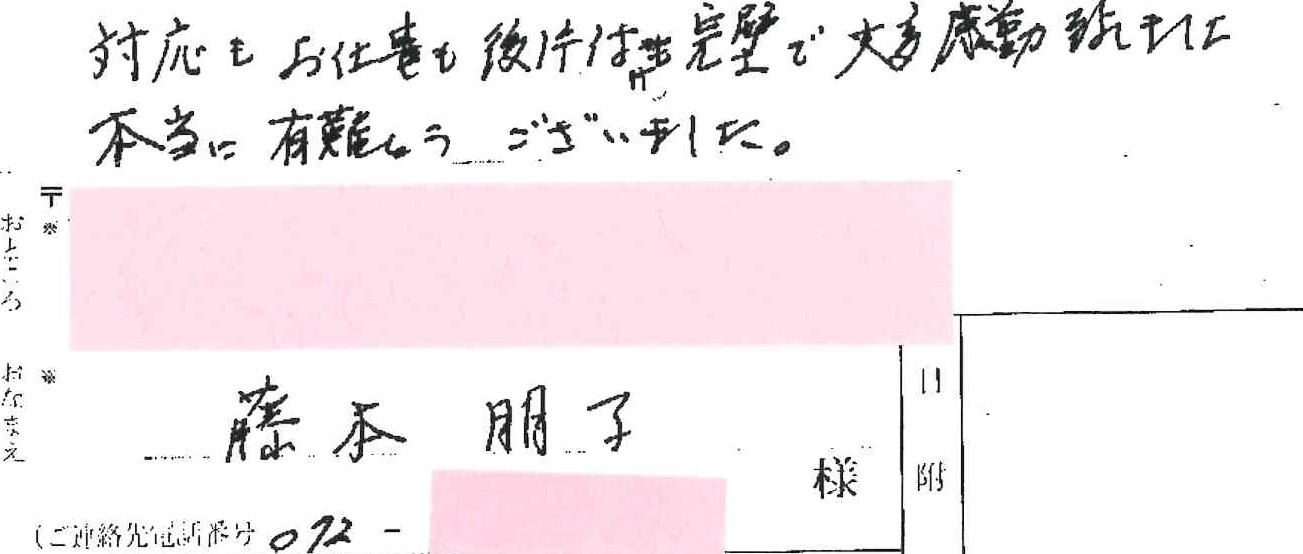 対応もお仕事も後片付け完璧で大変感動致しました
本当に有難とうございました。
〒
※
おところ
※
おなまえ
藤本 朋子
様
日附
(ご連絡先電話番号 072-